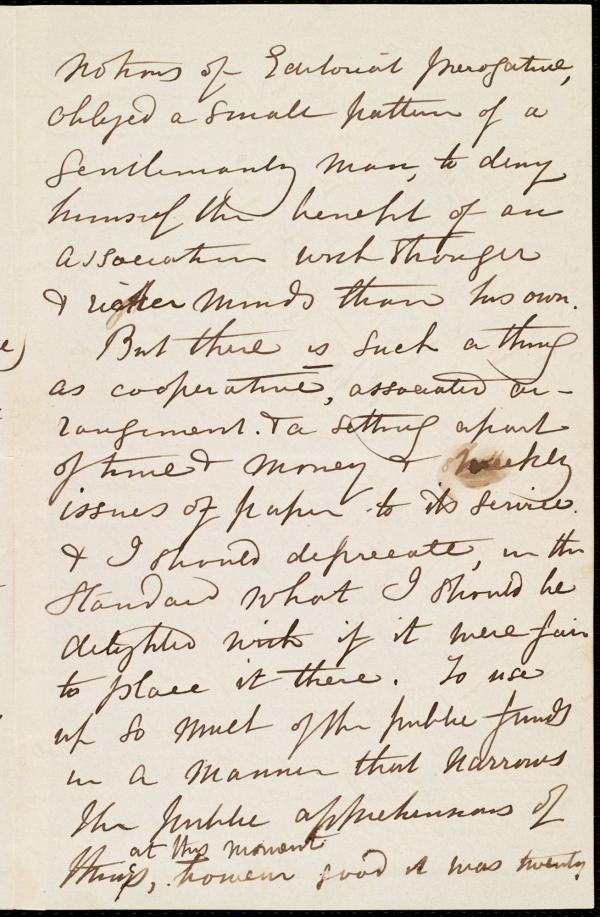 notions of Editorial prerogative,
obliged a small pattern of a
gentlemanly man, to deny
himself the benefit of an
association with stronger
& richer minds than his own.
But there is such a thing
as cooperative, associated ar-
rangement. & a setting apart
of time & money & weekly
issues of paper to its service.
& I should deprecate, in the
Standard what I should be
delighted with if it were fair
to place it there. To use
up so much of the public funds
in a manner that narrows
the public apprehensions of
at this moment
things, however good it was twenty